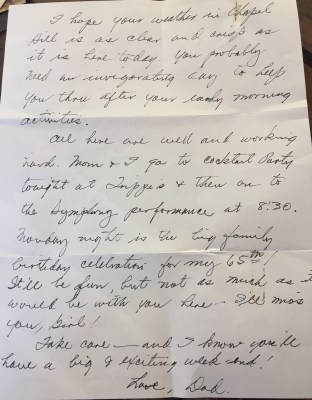 I hope your weather in Chapel
Hill is as clear and crisp as
it is here today. You probably
need an invigorating day to help
you thru after your early morning
activities.
All here are well and working
hard. Mom & I go to cocktail Party
tonight at Tripps & then on to
the Symphony performance at 8:30.
Monday night is the big family
birthday celebration for my 65th!
It'll be fun, but not as much as it
would be with you here - I'll miss
you, Girl!
Take care - and I know you'll
have a big & exciting week-end!
Love, Dad.